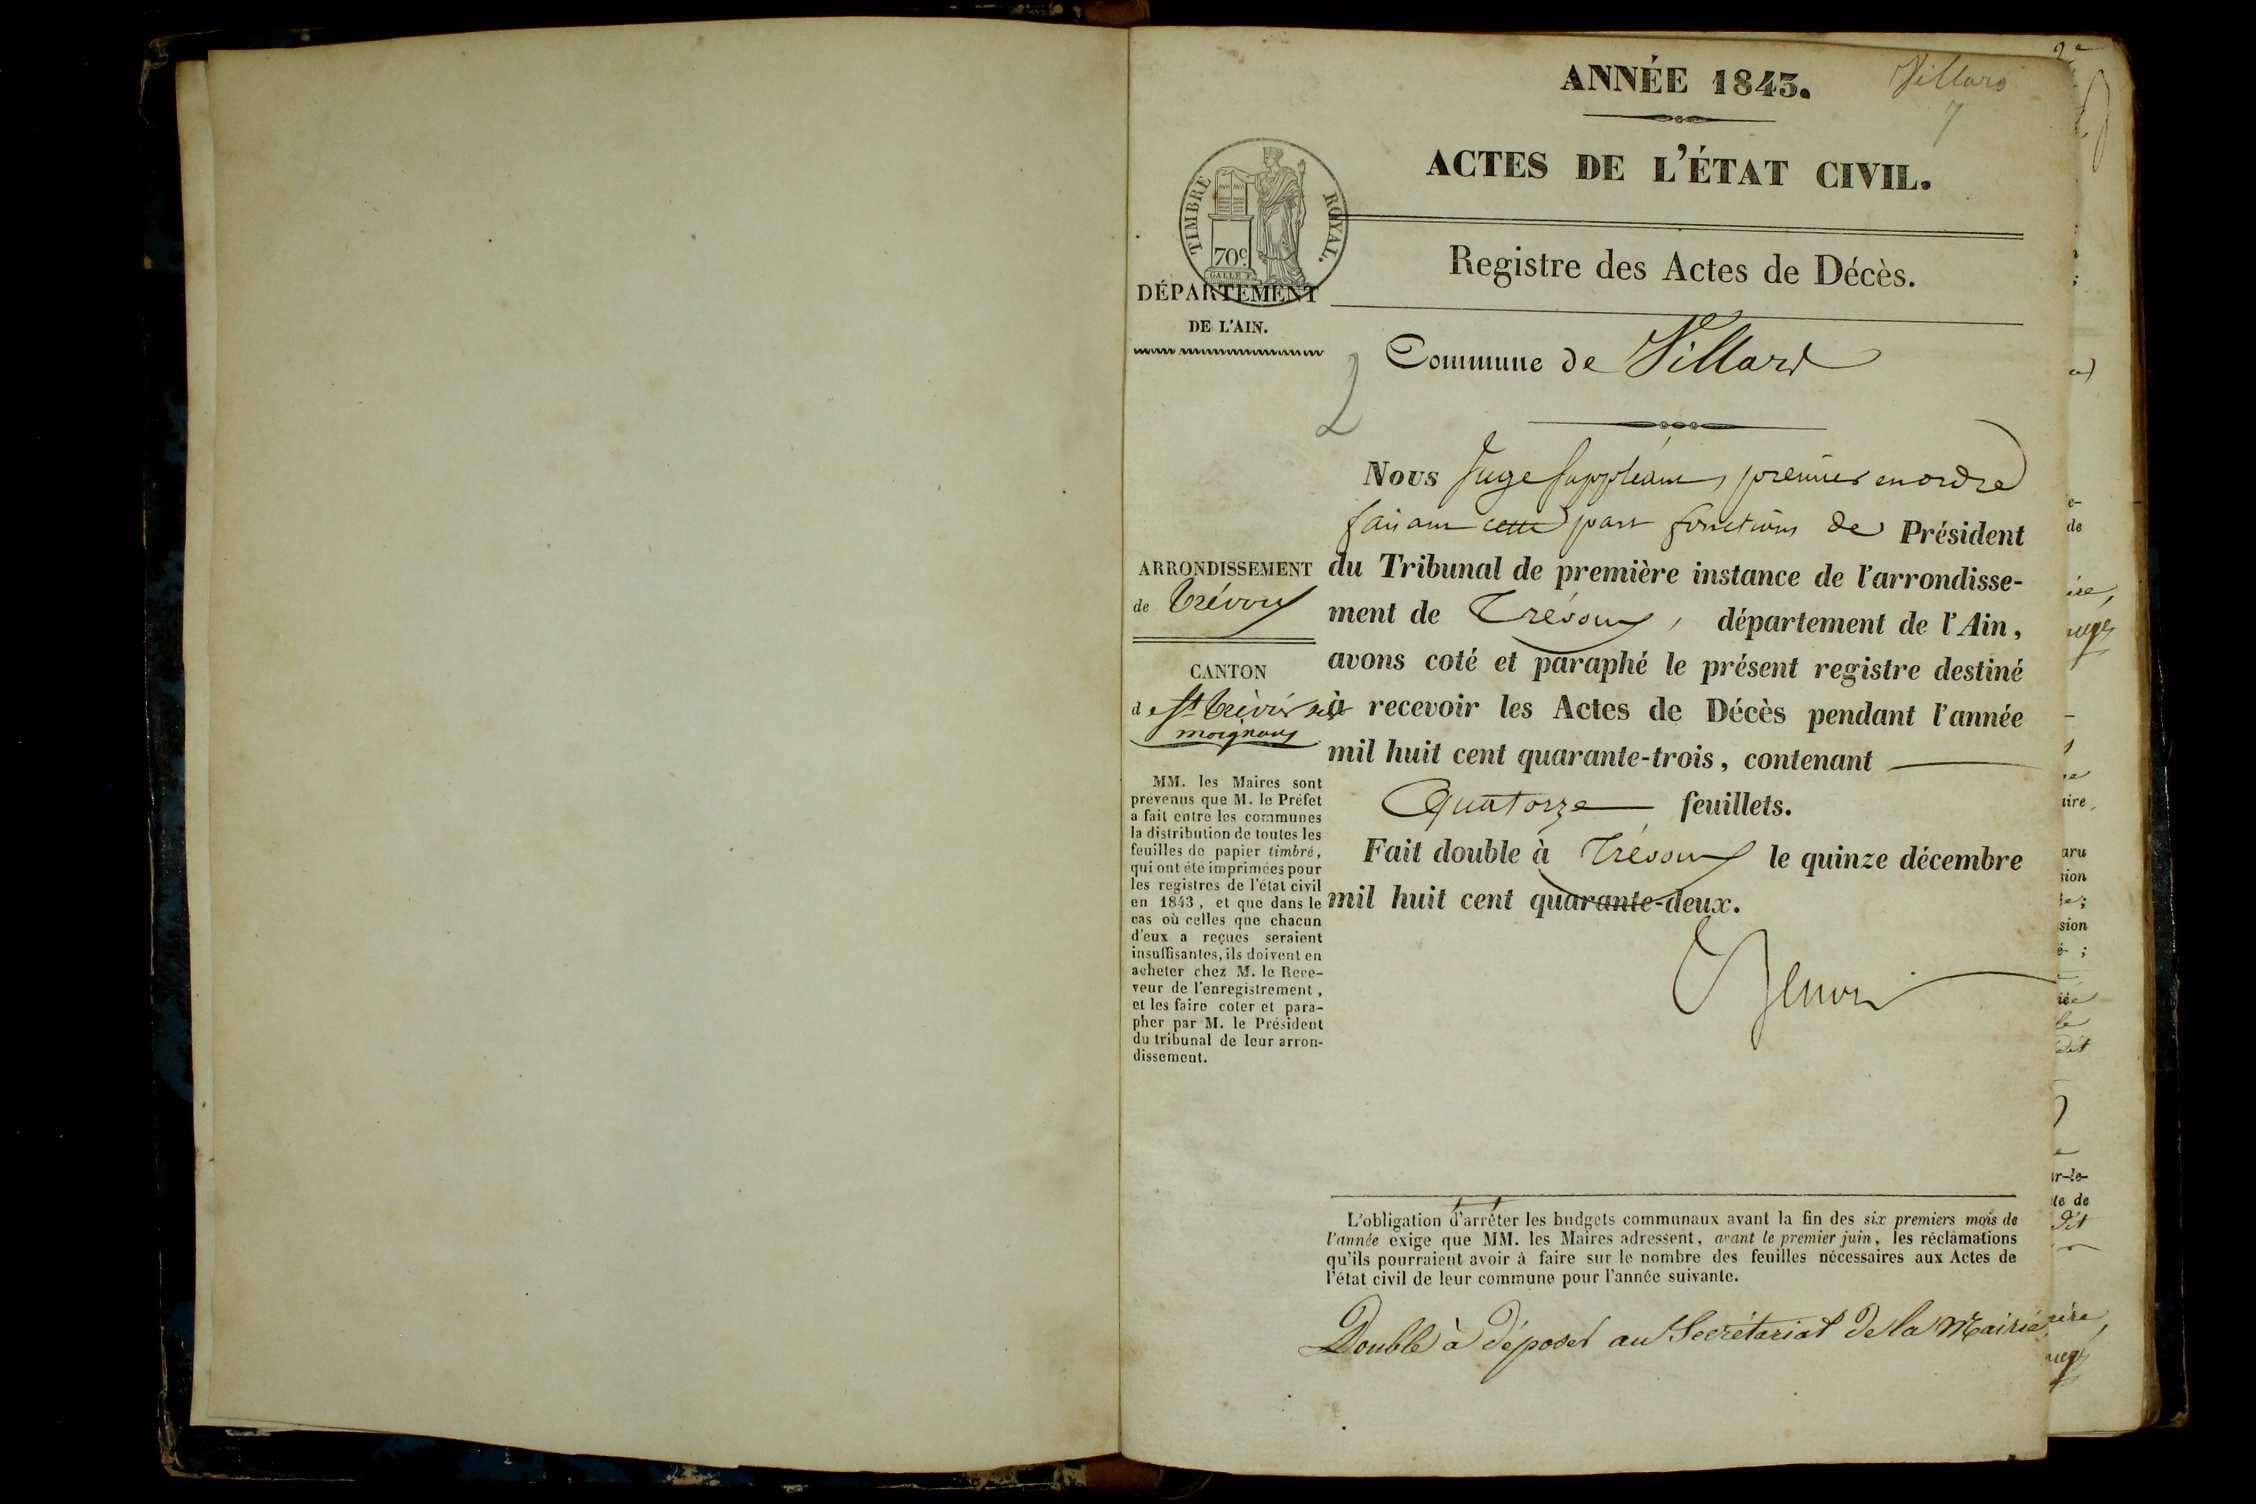 ANNÉE 1843.
Villars
7
ACTES DE L'ÉTAT CIVIL.
TIMBRE ROYAL.
70c
GALLE F.
Registre des Actes de Décès.
DÉPARTEMENT
DE L'AIN.
2
Commune de Villard
Nous Juge suppléant, premier en ordre
faisant cette part fonctions de Président
du Tribunal de première instance de l'arrondisse-
ment de Trévoux, département de l'Ain,
avons coté et paraphé le présent registre destiné
à recevoir les Actes de Décès pendant l'année
mil huit cent quarante-trois, contenant
Quatorze feuillets.
Fait double à Trévoux le quinze décembre
mil huit cent quarante-deux.
ARRONDISSEMENT
de Trévoux
CANTON
de St Trivier sur
moignans
MM. les Maires sont
prévenus que M. le Préfet
a fait entre les communes
la distribution de toutes les
feuilles de papier timbré,
qui ont été imprimées pour
les registres de l'état civil
en 1843, et que dans le
cas où celles que chacun
d'eux a reçues seraient
insuffisantes, ils doivent en
acheter chez M. le Rece-
veur de l'enregistrement,
et les faire coter et para-
pher par M. le Président
du tribunal de leur arron-
dissement.
L'obligation d'arrêter les budgets communaux avant la fin des six premiers mois de
l'année exige que MM. les Maires adressent, avant le premier juin, les réclamations
qu'ils pourraient avoir à faire sur le nombre des feuilles nécessaires aux Actes de
l'état civil de leur commune pour l'année suivante.
Double à déposer au Secrétariat de la Mairie